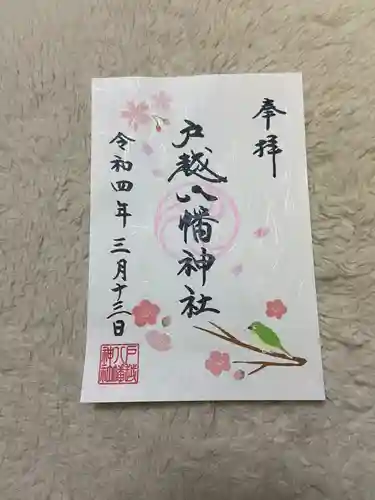 奉拝
戸越八幡神社
令和四年三月十三日
戸越八幡神社